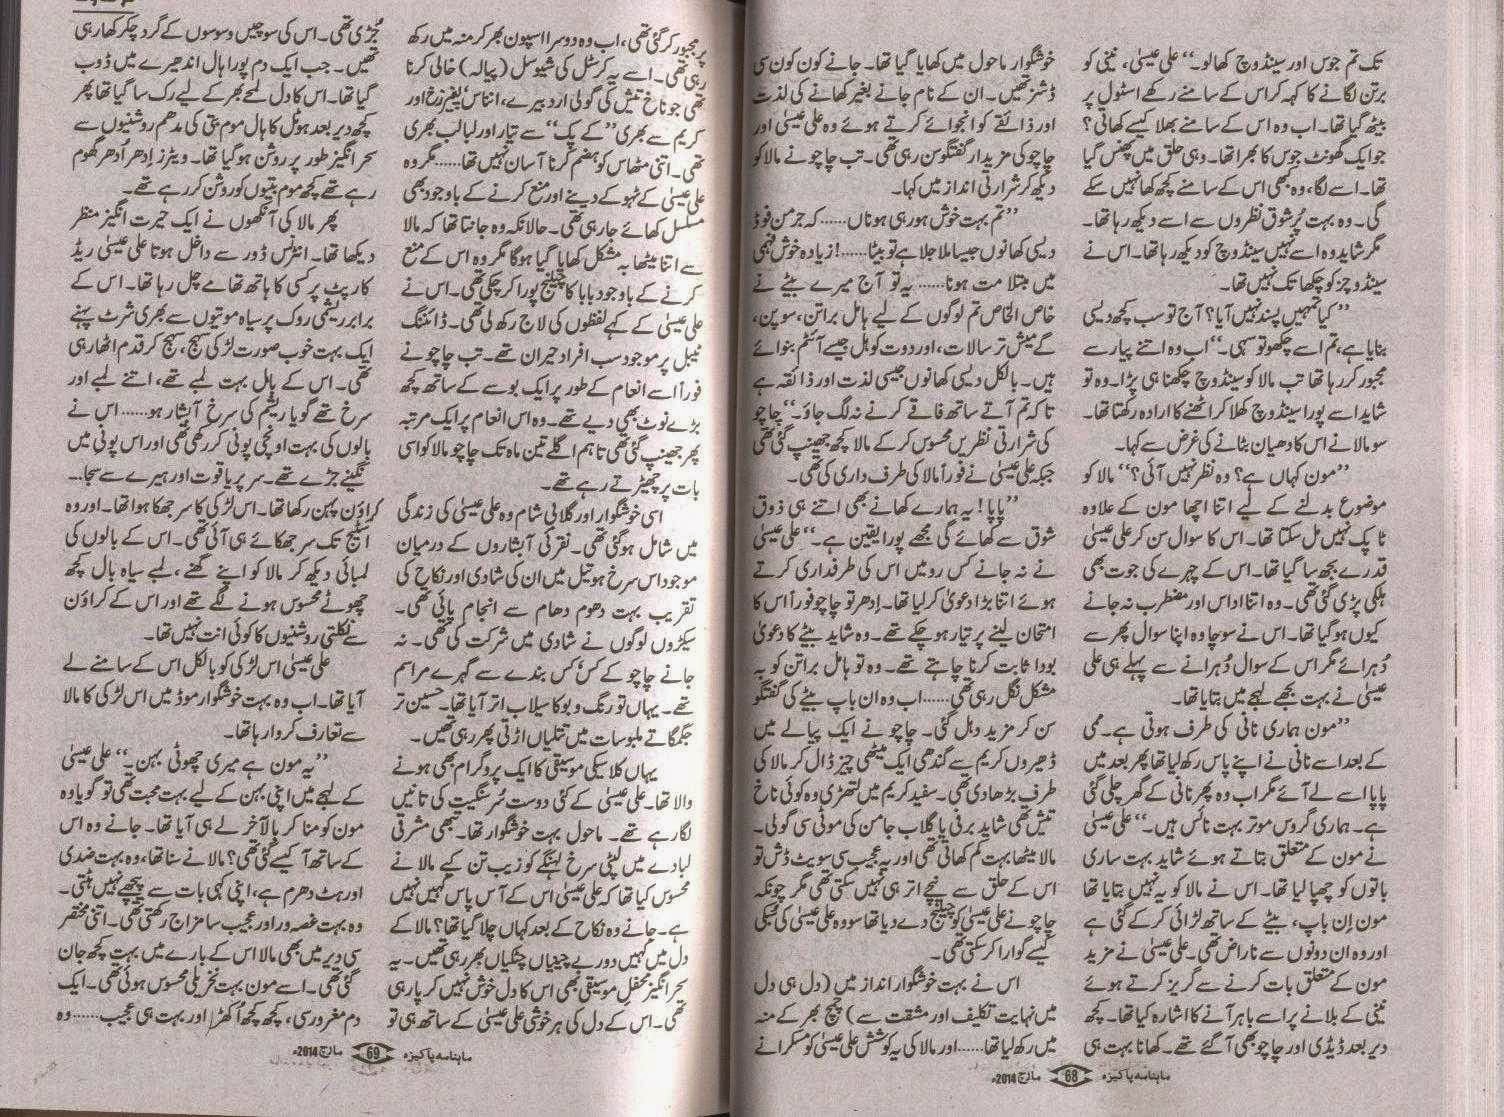 تک تم جوس اور سینڈوچ کھالو۔“ علی عیسیٰ، نینی کو
برتن لگانے کا کہہ کر اس کے سامنے رکھے اسٹول پر
بیٹھ گیا تھا۔ اب وہ اس کے سامنے بھلا کیسے کھاتی؟
جو ایک گھونٹ جوس کا بھرا تھا۔ وہی حلق میں پھنس گیا
تھا۔ اسے لگا، وہ کبھی اس کے سامنے کچھ کھا نہیں سکے
گی۔ وہ بہت پُرشوق نظروں سے اسے دیکھ رہا تھا۔
مگر شاید وہ اسے نہیں سینڈوچ کو دیکھ رہا تھا۔ اس نے
سینڈوچز کو چکھا تک نہیں تھا۔
”کیا تمہیں پسند نہیں آیا؟ آج تو سب کچھ دیسی
بنایا ہے، تم اسے چکھو تو سہی۔“ اب وہ اتنے پیار سے
مجبور کر رہا تھا تب مالا کو سینڈوچ چکھنا ہی پڑا۔ وہ تو
شاید اسے پورا سینڈوچ کھلا کر اٹھنے کا ارادہ رکھتا تھا۔
سو مالا نے اس کا دھیان بٹانے کی غرض سے کہا۔
”مون کہاں ہے؟ وہ نظر نہیں آئی؟“ مالا کو
موضوع بدلنے کے لیے اتنا اچھا مون کے علاوہ
ٹاپک نہیں مل سکتا تھا۔ اس کا سوال سن کر علی عیسیٰ
قدرے بجھ سا گیا تھا۔ اس کے چہرے کی جوت بھی
ہلکی پڑی گئی تھی۔ وہ اتنا اداس اور مضطرب نہ جانے
کیوں ہو گیا تھا۔ اس نے سوچا وہ اپنا سوال پھر سے
دُہرائے مگر اس کے سوال دُہرانے سے پہلے ہی علی
عیسیٰ نے بہت بجھے لہجے میں بتایا تھا۔
”مون ہماری نانی کی طرف ہوتی ہے۔ ممی
کے بعد اسے نانی نے اپنے پاس رکھ لیا تھا پھر بعد میں
پاپا اسے لے آئے مگر اب وہ پھر نانی کے گھر چلی گئی
ہے۔ ہماری گروس موتر بہت نائس ہیں۔“ علی عیسیٰ
نے مون کے متعلق بتاتے ہوئے شاید بہت ساری
باتوں کو چھپا لیا تھا۔ اس نے مالا کو یہ نہیں بتایا تھا
مون اِن باپ، بیٹے کے ساتھ لڑائی کر کے گئی ہے
اور وہ ان دونوں سے ناراض تھی۔ علی عیسیٰ نے مزید
مون کے متعلق بات کرنے سے گریز کرتے ہوئے
نینی کے بلانے پر اسے باہر آنے کا اشارہ کیا تھا۔ کچھ
دیر بعد ڈیڈی اور چاچو بھی آگئے تھے۔ کھانا بہت ہی
خوشگوار ماحول میں کھایا گیا تھا۔ جانے کون کون سی
ڈشز تھیں۔ ان کے نام جانے بغیر کھانے کی لذت
اور ذائقے کو انجوائے کرتے ہوئے وہ علی عیسیٰ اور
چاچو کی مزیدار گفتگو سن رہی تھی۔ تب چاچو نے مالا کو
دیکھ کر شرارتی انداز میں کہا۔
”تم بہت خوش ہو رہی ہوناں...... کہ جرمن فوڈ
دیسی کھانوں جیسا ملا جلا ہے تو بیٹا......! زیادہ خوش فہمی
میں مبتلا مت ہونا...... یہ تو آج میرے بیٹے نے
خاص الخاص تم لوگوں کے لیے ہامل براتن، سوپن،
گے میش تر سالات، اور دوت کوہل جیسے آئٹم بنوائے
ہیں۔ بالکل دیسی کھانوں جیسی لذت اور ذائقہ ہے
تا کہ تم آتے ساتھ فاقے کرنے نہ لگ جاؤ۔“ چاچو
کی شرارتی نظریں محسوس کر کے مالا کچھ جھینپ گئی تھی
جبکہ علی عیسیٰ نے فوراً مالا کی طرف داری کی تھی۔
”پاپا! یہ ہمارے کھانے بھی اتنے ہی ذوق
شوق سے کھائے گی مجھے پورا یقین ہے۔“ علی عیسیٰ
نے نہ جانے کس رو میں اس کی طرفداری کرتے
ہوئے اتنا بڑا دعویٰ کر لیا تھا۔ اِدھر تو چاچو فوراً اس کا
امتحان لینے پر تیار ہو چکے تھے۔ وہ شاید بیٹے کا دعویٰ
بودا ثابت کرنا چاہتے تھے۔ وہ تو ہامل براتن کو بہ
مشکل نگل رہی تھی...... اب وہ ان باپ بیٹے کی گفتگو
سن کر مزید دہل گئی۔ چاچو نے ایک پیالے میں
ڈھیروں کریم سے گندھی ایک میٹھی چیز ڈال کر مالا کی
طرف بڑھا دی تھی۔ سفید کریم میں لتھڑی وہ کوئی ناخ
تیش تھی شاید برفی یا گلاب جامن کی موٹی سی گولی۔
مالا میٹھا بہت کم کھاتی تھی اور یہ عجیب سی سویٹ ڈش تو
اس کے حلق سے نیچے اتر ہی نہیں سکتی تھی مگر چونکہ
چاچو نے علی عیسیٰ کو چیلنج دے دیا تھا سو وہ علی عیسیٰ کی سُبکی
کیسے گوارا کر سکتی تھی۔
اس نے بہت خوشگوار انداز میں (دل ہی دل
میں نہایت تکلیف اور مشقت سے) چمچ بھر کے منہ
میں رکھ لیا تھا...... اور مالا کی یہ کوشش علی عیسیٰ کو مسکرانے
ماہنامہ پاکیزہ 68 مارچ 2014ء
پر مجبور کر گئی تھی، اب وہ دوسرا اسپون بھر کر منہ میں رکھ
رہی تھی۔ اسے یہ کرسٹل کی شیوسل (پیالہ) خالی کرنا
تھی جو ناخ تیش کی گولی اردبیرے، انناس پفیرزخ اور
کریم سے بھری ”کے پک“ سے تیار اور لبالب بھری
تھی۔ اتنی مٹھاس کو ہضم کرنا آسان نہیں تھا...... مگر وہ
علی عیسیٰ کے ٹہوکے دینے اور منع کرنے کے باوجود بھی
مسلسل کھائے جا رہی تھی۔ حالانکہ وہ جانتا تھا کہ مالا
سے اتنا میٹھا بہ مشکل کھایا گیا ہوگا مگر وہ اس کے منع
کرنے کے باوجود بابا کا چیلنج پورا کر چکی تھی۔ اس نے
علی عیسیٰ کے کہے لفظوں کی لاج رکھ لی تھی۔ ڈائننگ
ٹیبل پر موجود سب افراد حیران تھے۔ تب چاچو نے
فوراً اسے انعام کے طور پر ایک بوسے کے ساتھ کچھ
بڑے نوٹ بھی دیے تھے۔ وہ اس انعام پر ایک مرتبہ
پھر جھینپ گئی تھی تاہم اگلے تین ماہ تک چاچو مالا کو اسی
بات پر چھیڑتے رہے تھے۔
اسی خوشگوار اور گلابی شام وہ علی عیسیٰ کی زندگی
میں شامل ہو گئی تھی۔ نقرئی آبشاروں کے درمیان
موجود اس سرخ ہوٹیل میں ان کی شادی اور نکاح کی
تقریب بہت دھوم دھام سے انجام پائی تھی۔
سیکڑوں لوگوں نے شادی میں شرکت کی تھی۔ نہ
جانے چاچو کے کس کس بندے سے گہرے مراسم
تھے۔ یہاں تو رنگ و بو کا سیلاب اتر آیا تھا۔ حسین تر
جگمگاتے ملبوسات میں تتلیاں اڑتی پھر رہی تھیں۔
یہاں کلاسیکی موسیقی کا ایک پروگرام بھی ہونے
والا تھا۔ علی عیسیٰ کے کئی دوست سُر سنگیت کی تانیں
لگا رہے تھے۔ ماحول بہت خوشگوار تھا۔ تبھی مشرقی
لبادے میں لپٹی سرخ لہنگے کو زیب تن کیے مالا نے
محسوس کیا تھا کہ علی عیسیٰ اس کے آس پاس کہیں نہیں
ہے۔ جانے وہ نکاح کے بعد کہاں چلا گیا تھا؟ مالا کے
دل میں کہیں دور بے چینیاں چٹکیاں بھر رہی تھیں۔ یہ
سحر انگیز محفلِ موسیقی بھی اس کا دل خوش نہیں کر پا رہی
تھی۔ اس کے دل کی ہر خوشی علی عیسیٰ کے ساتھ ہی تو
جُڑی تھی۔ اس کی سوچیں وسوسوں کے گرد چکر کھا رہی
تھیں۔ جب ایک دم پورا ہال اندھیرے میں ڈوب
گیا تھا۔ اس کا دل لمحے بھر کے لیے رک سا گیا تھا پھر
کچھ دیر بعد ہوٹل کا ہال موم بتی کی مدھم روشنیوں سے
سحر انگیز طور پر روشن ہو گیا تھا۔ ویٹرز اِدھر اُدھر گھوم
رہے تھے کچھ موم بتیوں کو روشن کر رہے تھے۔
پھر مالا کی آنکھوں نے ایک حیرت انگیز منظر
دیکھا تھا۔ انٹرنس ڈور سے داخل ہوتا علی عیسیٰ ریڈ
کارپٹ پر کسی کا ہاتھ تھامے چل رہا تھا۔ اس کے
برابر ریشمی روک پر سیاہ موتیوں سے بھری شرٹ پہنے
ایک بہت خوب صورت لڑکی سہج، سہج کر قدم اٹھا رہی
تھی۔ اس کے بال بہت لمبے تھے، اتنے لمبے اور
سرخ تھے گویا ریشم کی سرخ آبشار ہو...... اس نے
بالوں کی بہت اونچی پونی کر رکھی تھی اور اس پونی میں
نگینے جڑے تھے۔ سر پر یاقوت اور ہیرے سے سجا...
کراؤن پہن رکھا تھا۔ اس لڑکی کا سر جھکا ہوا تھا۔ اور وہ
اسٹیج تک سر جھکائے ہی آئی تھی۔ اس کے بالوں کی
لمبائی دیکھ کر مالا کو اپنے گھنے، لمبے سیاہ بال کچھ
چھوٹے محسوس ہونے لگے تھے اور اس کے کراؤن
سے نکلتی روشنیوں کا کوئی انت نہیں تھا۔
علی عیسیٰ اس لڑکی کو بالکل اس کے سامنے لے
آیا تھا۔ اب وہ بہت خوشگوار موڈ میں اس لڑکی کا مالا
سے تعارف کروا رہا تھا۔
”یہ مون ہے میری چھوٹی بہن۔“ علی عیسیٰ
کے لہجے میں اپنی بہن کے لیے بہت محبت تھی تو گویا وہ
مون کو منا کر بالآخر لے ہی آیا تھا۔ جانے وہ اس
کے ساتھ آ کیسے گئی تھی؟ مالا نے سنا تھا، وہ بہت ضدی
اور ہٹ دھرم ہے، اپنی کہی بات سے پیچھے نہیں ہٹتی۔
وہ بہت غصہ ور اور عجیب سا مزاج رکھتی تھی۔ اتنی مختصر
سی دیر میں بھی مالا اس کے بارے میں بہت کچھ جان
گئی تھی۔ اسے مون بہت نخریلی محسوس ہوئی تھی۔ ایک
دم مغرور سی، کچھ کچھ اُکھڑ اور بہت ہی عجیب...... وہ
ماہنامہ پاکیزہ 69 مارچ 2014ء